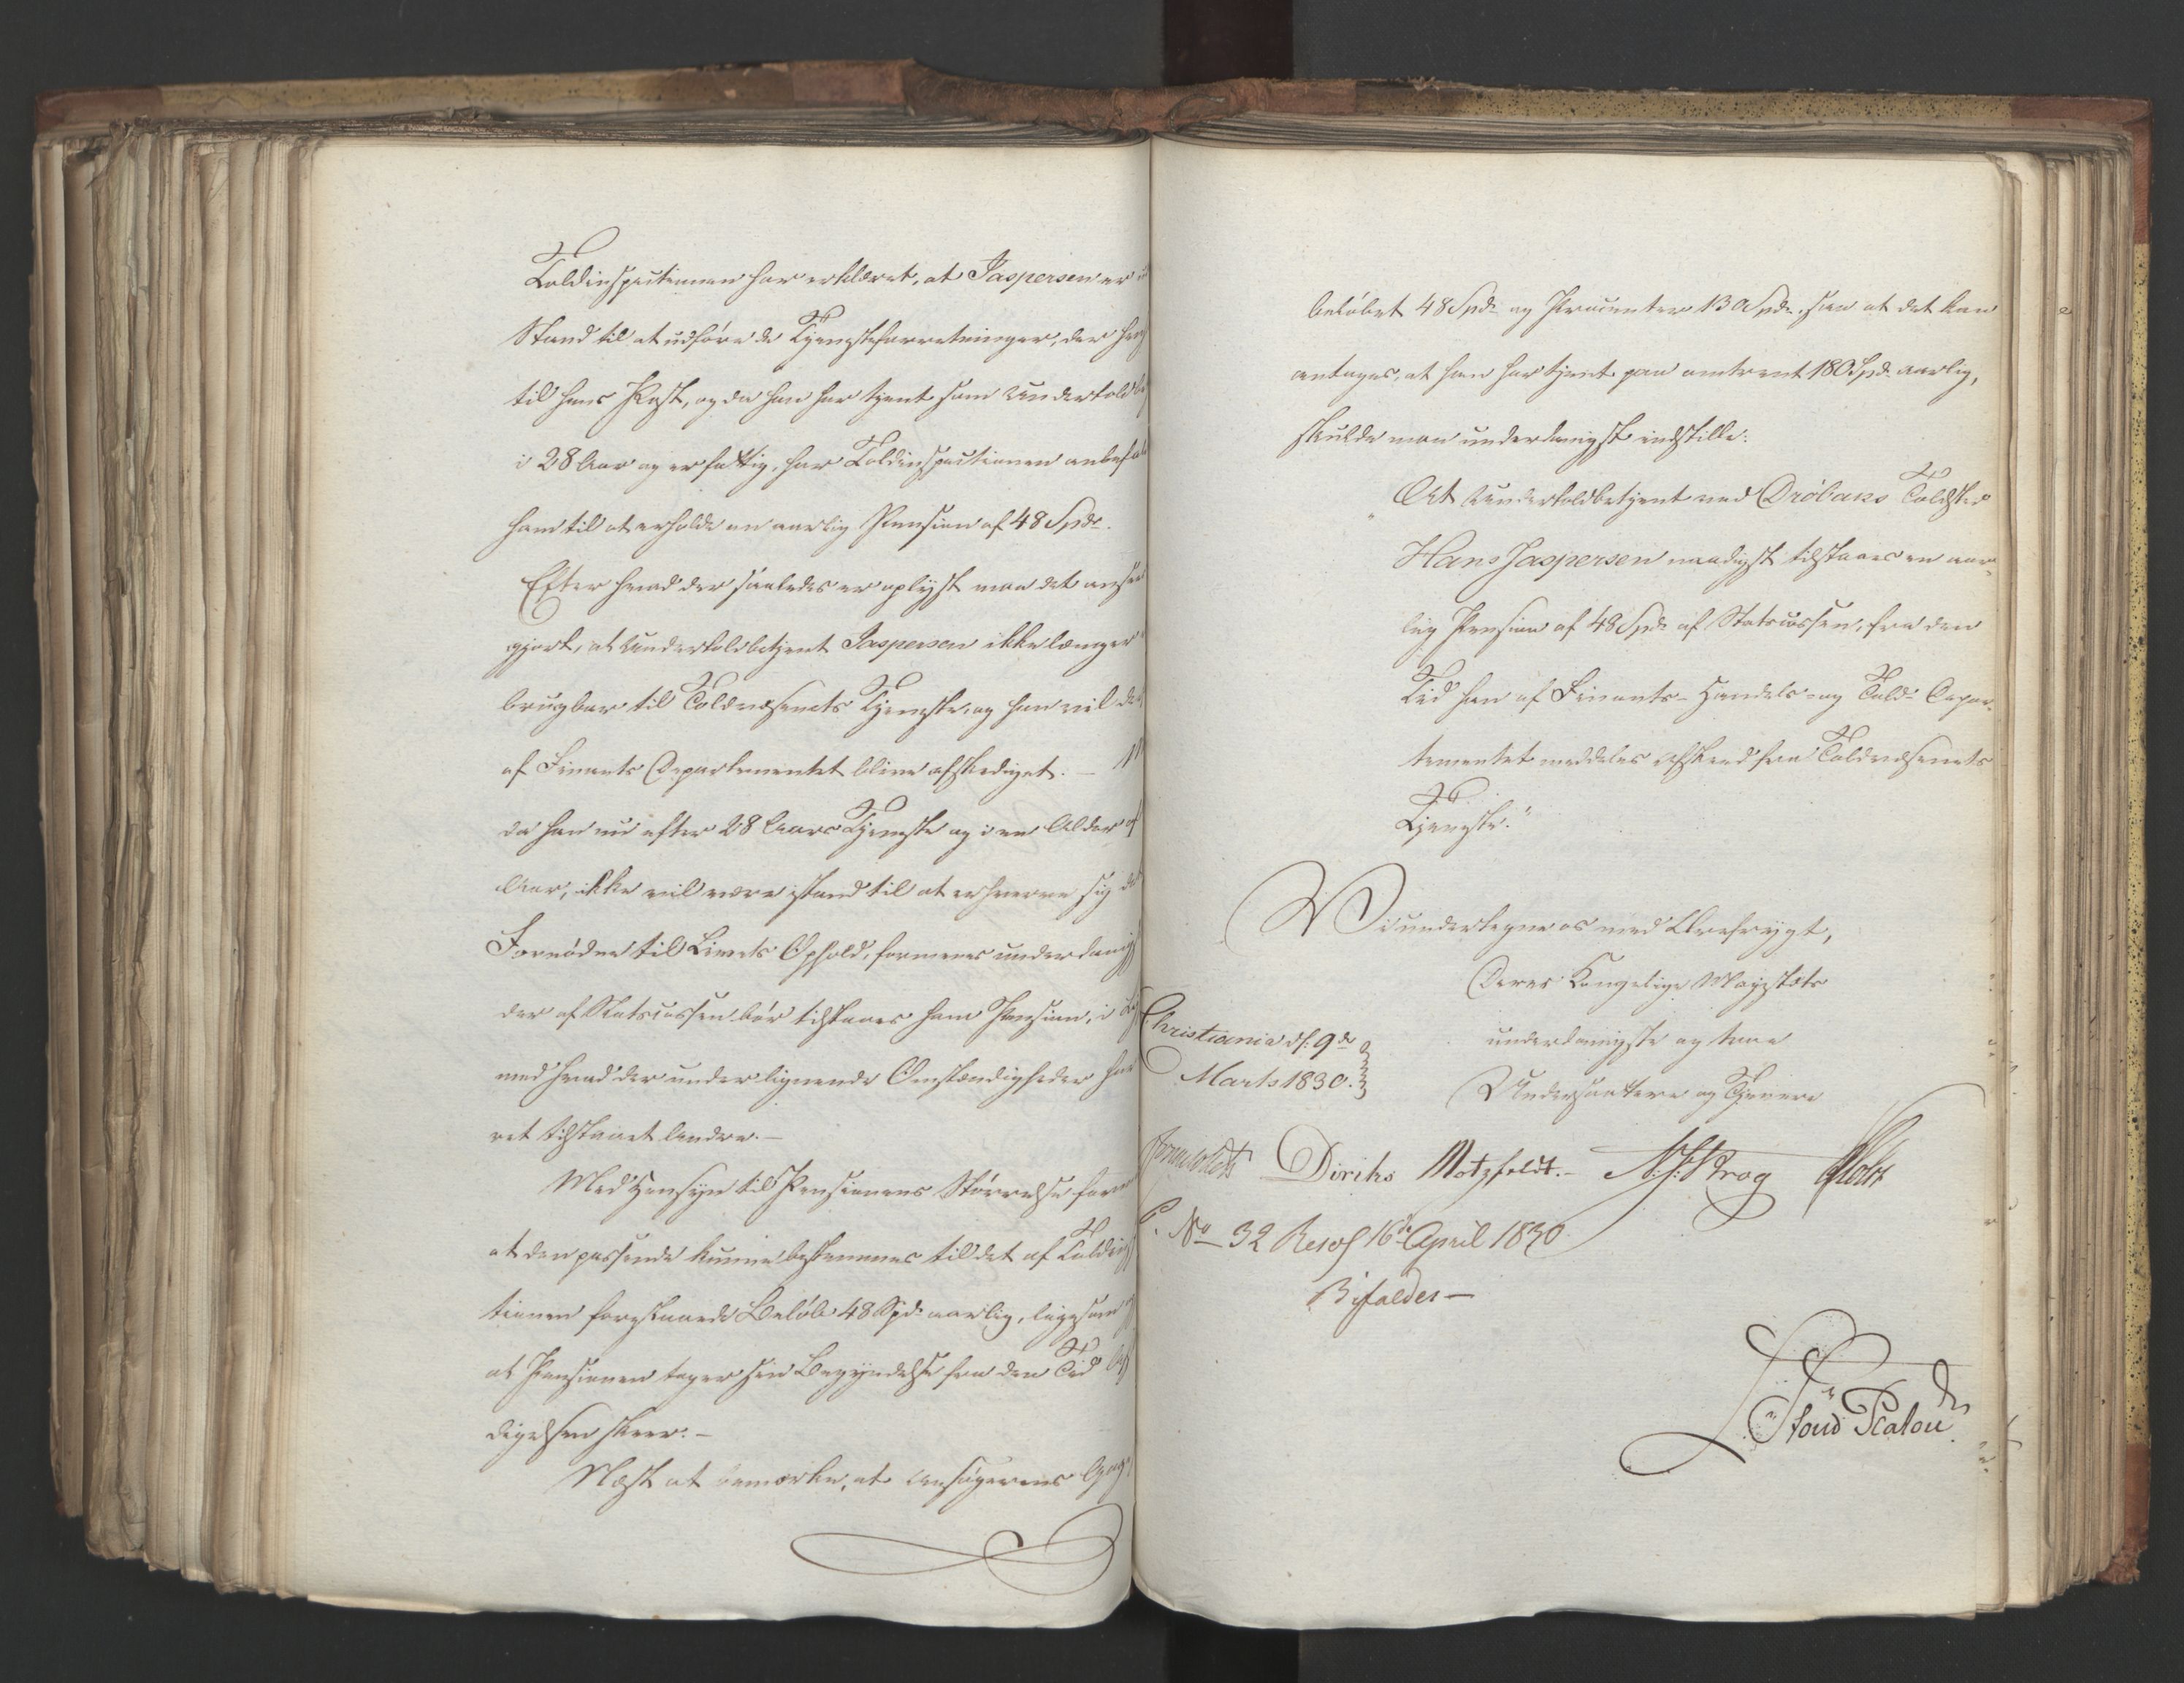 Toldinspectionen har erklæret, at Jaspersen er
Stand til at udføre de Tjenesteforretninger, der
til hans Post, og da han har tjent som Undertold
i 28 Aar og er fattig, har Toldinspectionen anbef
ham til at erholde en aarlig Pension af 48 Spdr.
Efter hvad der saaledes er oplyst maa det ansees
gjort, at Undertoldbetjent Jaspersen ikke længer
brugbar til Toldvæsenets Tjeneste, og han vil
af Finants Departementet blive afskediget. –
da han nu efter 28 Aars Tjeneste og i en Alder af
Aar, ikke vil være istand til at erhverve sig det
Fornødne til Livets Ophold, formenes underdanigst
der af Statscassen bør tilstaaes ham Pension, i
med hvad der under lignende Omstændigheder har
ret tilstaaet Andre. –
Med Hensyn til Pensionens Størrelse form
at den passende kunne bestemmes til det af Toldinsp
tionen foreslaaede Beløb 48 Spd. aarlig, ligesom
at Pensionen tager sin Begyndelse fra den Tid
digelsen skeer. –
Næst at bemærke, at Ansøgerens Gage
beløbet 48 Spd. og Procenter 130 Spd., saa at det kan
antages, at han har tjent paa omtrent 180 Spd. aarlig,
skulde man underdanigst indstille:
"At Undertoldbetjent ved Drøbaks Toldsted
Hans Jaspersen naadigst tilstaaes en aar-
lig Pension af 48 Spd. af Statscassen, fra den
Tid han af Finants- Handels- og Told- Depar-
tementet meddeles Afskeed fra Toldvæsenets
Tjeneste."
Vi undertegne os med Ærefrygt,
Deres Kongelige Majestæts
underdanigste og troe
Undersaattere og Tjenere
Christiania d. 9de
Marts 1830.
Diriks Motzfeldt. – Krog Holst
No 32 Resol 16de April 1830
Bifaldes –